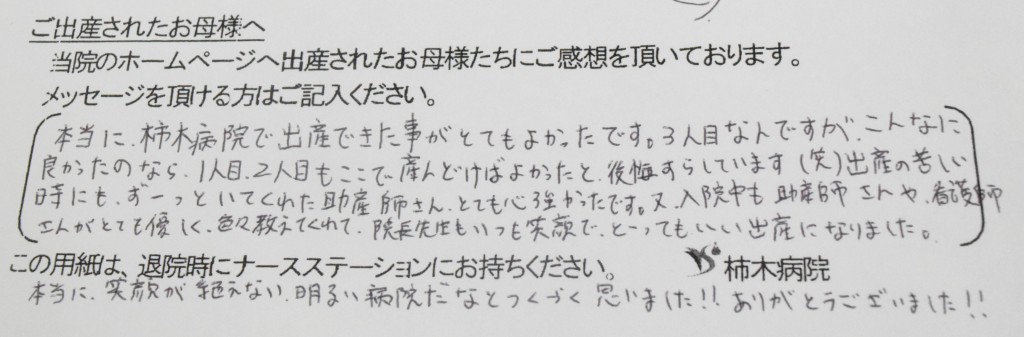 ご出産されたお母様へ
当院のホームページへ出産されたお母様たちにご感想を頂いております。
メッセージを頂ける方はご記入ください。
本当に、柿木病院で出産できた事がとてもよかったです。3人目なんですが、こんなに
良かったのなら、1人目、2人目もここで産んどけばよかったと、後悔すらしています(笑)出産の苦しい
時にも、ずーっといてくれた助産師さん、とても心強かったです。又、入院中も助産師さんや、看護師
さんがとても優しく、色々教えてくれて、院長先生もいつも笑顔で、とってもいい出産になりました。
この用紙は、退院時にナースステーションにお持ちください。 柿木病院
本当に、笑顔が絶えない、明るい病院だなとつくづく思いました!!ありがとうございました!!